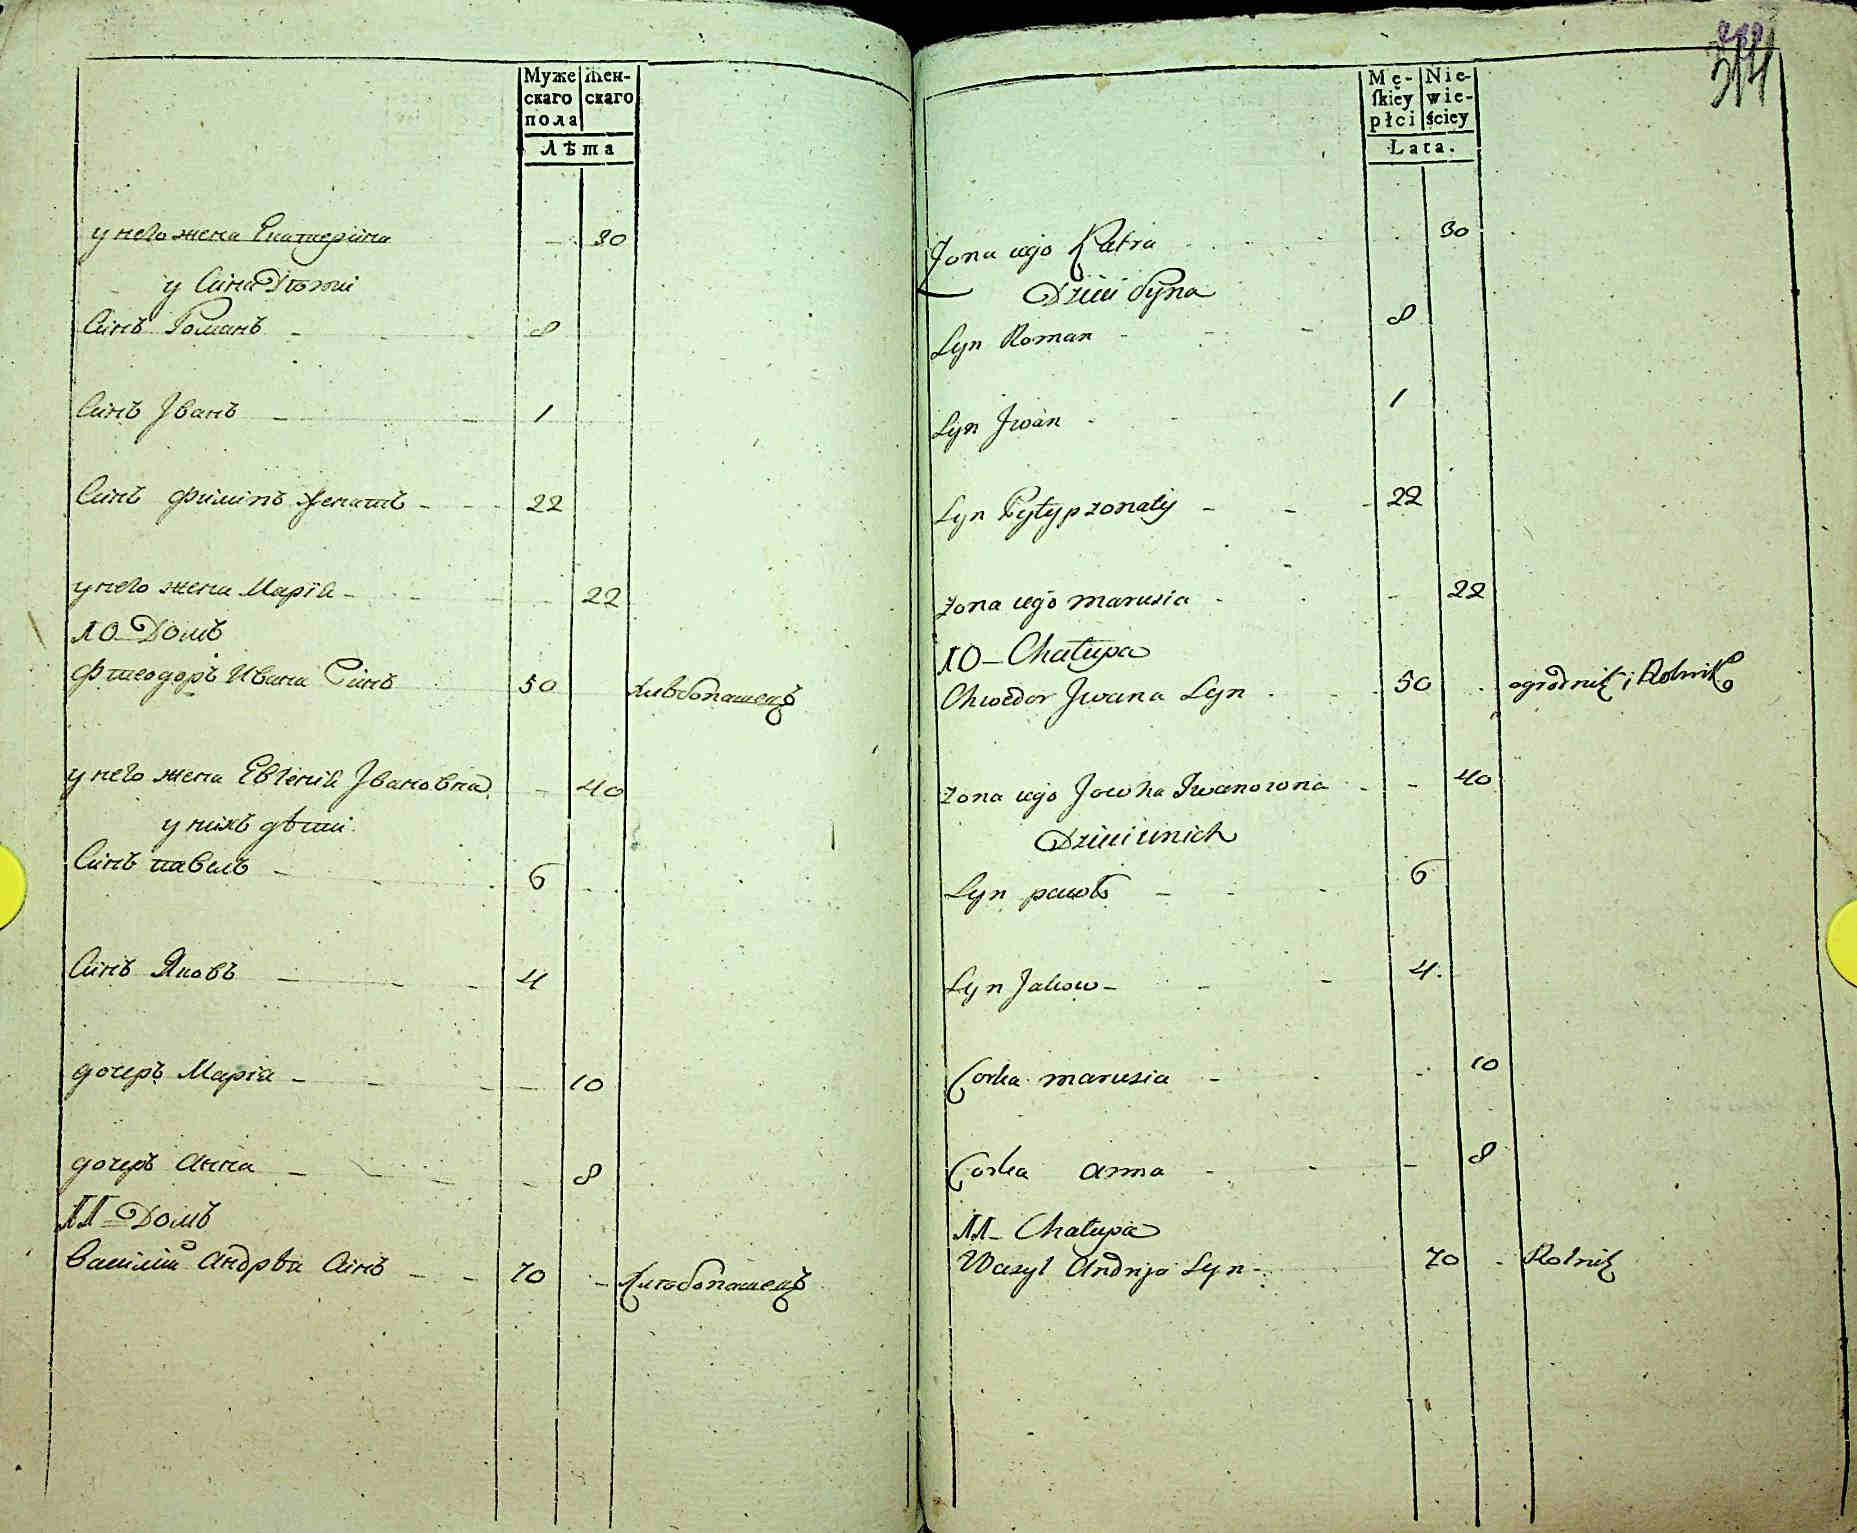 Муже скаго пола
Жен- скаго
Лѣта
у него жена Екатеріна - 30
у Сина Дѣти
Синъ Романъ - 8
Синъ Іванъ - 1
Синъ Филипъ женатъ - 22
у него жена Марія - 22
10 Домъ
Фтеодоръ Ивана Синъ 50 Хлѣбопашецъ
у него жена Евгенія Івановна - 40
у нихъ дѣти
Синъ павелъ - 6
Синъ Яковъ - 4
дочеръ Марія - 10
дочеръ Анна - 8
11 Домъ
Василій Андрѣя Синъ - 70 - Хлѣбопашецъ
Mę- ſkiey płci
Nie- wie- ściey
Lata.
Żona iego Katra 30
Dzieci Syna
Syn Roman - 8
Syn Jwan - 1
Syn Pyłyp zonaty - 22
żona iego marusia - 22
10 - Chałupa
Chwedor Jwana Syn 50 ogrodnik i Rolnik
żona iego Jowha Iwanowna - 40
Dzieci unich
Syn pawło - 6
Syn Jakow - 4.
Corka marusia - 10
Corka anna - 8
11 - Chałupa
Wasyl Andrija Syn - 70 - Rolnik